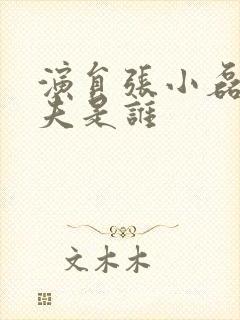 演員張小磊
夫是誰
文木木